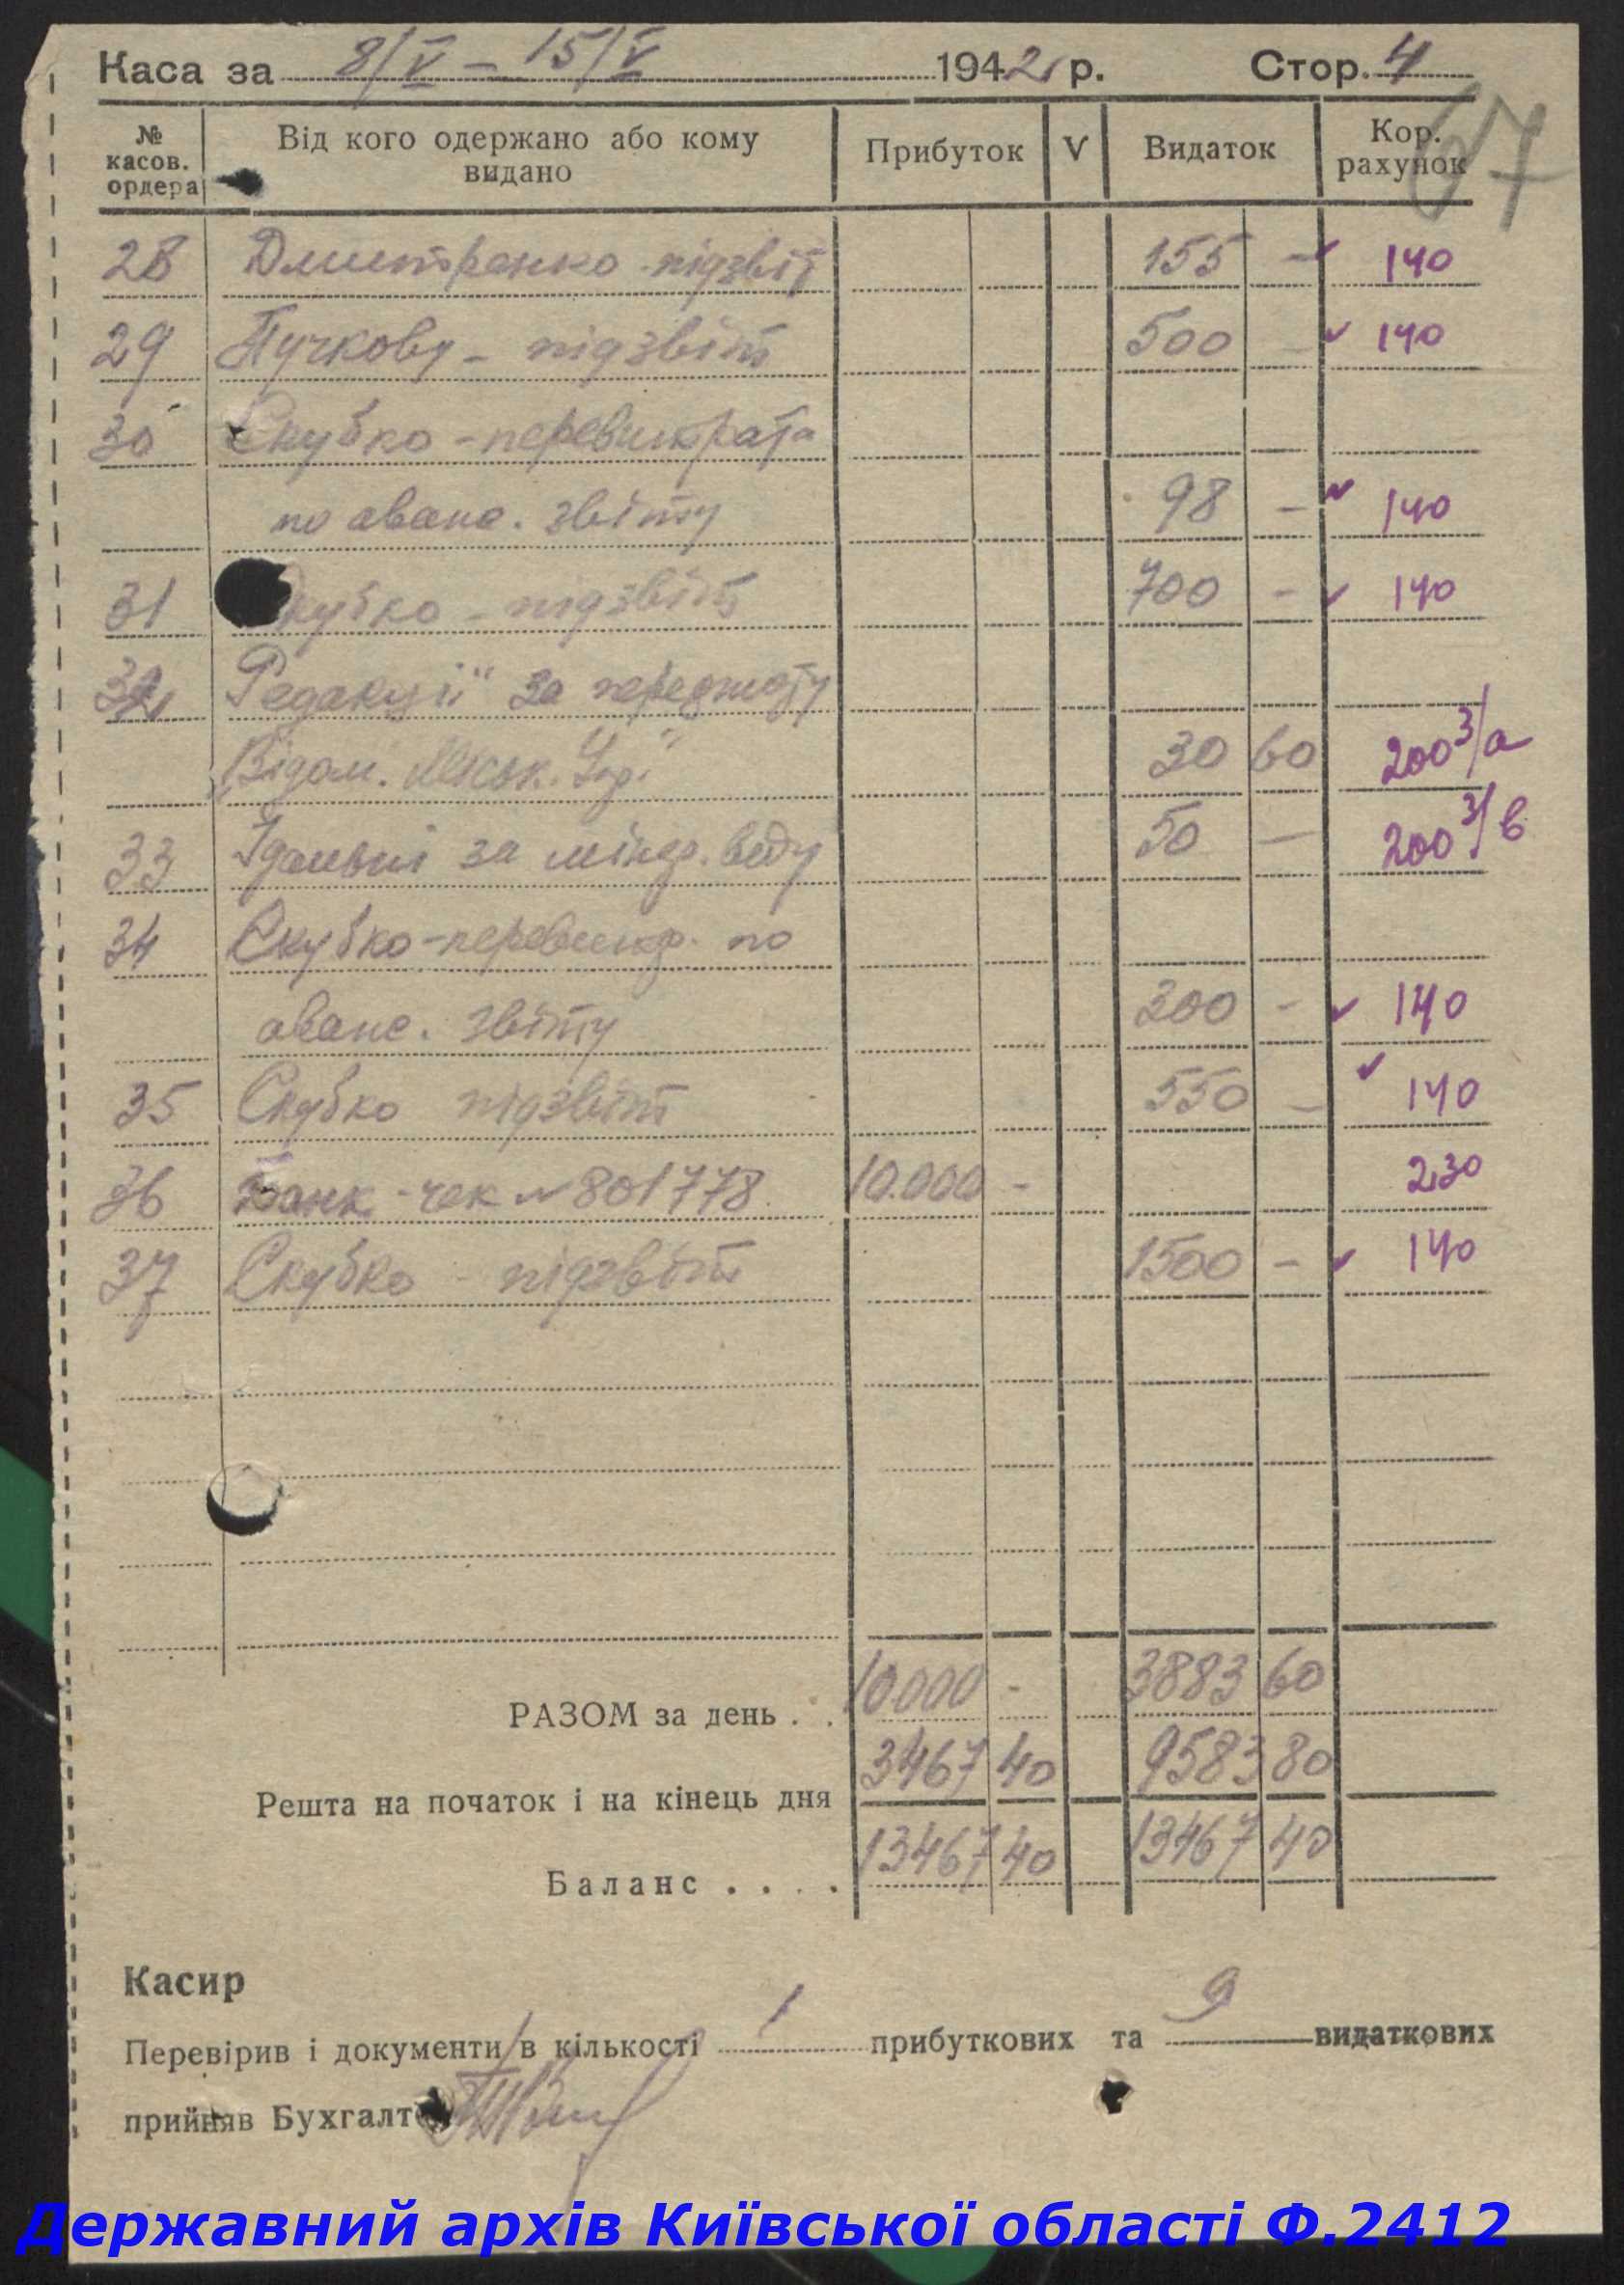 Каса за 8/V – 15/V 1942 р. Стор. 4
67
№ касов. ордера Від кого одержано або кому видано Прибуток V Видаток Кор. рахунок
28 Дмитренко - підзвіт 155 – 140
29 Пучкову – підзвіт 500 – 140
30 Скубко – перевитрата
по аванс. звіту 98 – 140
31 Скубко – підзвіт 700 – 140
32 Редакції за передплату
„Відом. Міськ. Упр." 30 60 200 3/а
33 Їдальні за мінер. воду 50 – 200 3/в
34 Скубко – перевитр. по
аванс. звіту 300 – 140
35 Скубко підзвіт 550 – 140
36 Банк - чек № 801778 10.000 – 230
37 Скубко – підзвіт 1500 – 140
РАЗОМ за день . . 10.000 – 3883 60
Решта на початок і на кінець дня 3467 40 9583 80
Баланс . . . . 13467 40 13467 40
Касир
Перевірив і документи в кількості 1 прибуткових та 9 видаткових
прийняв Бухгалт
Державний архів Київської області Ф.2412